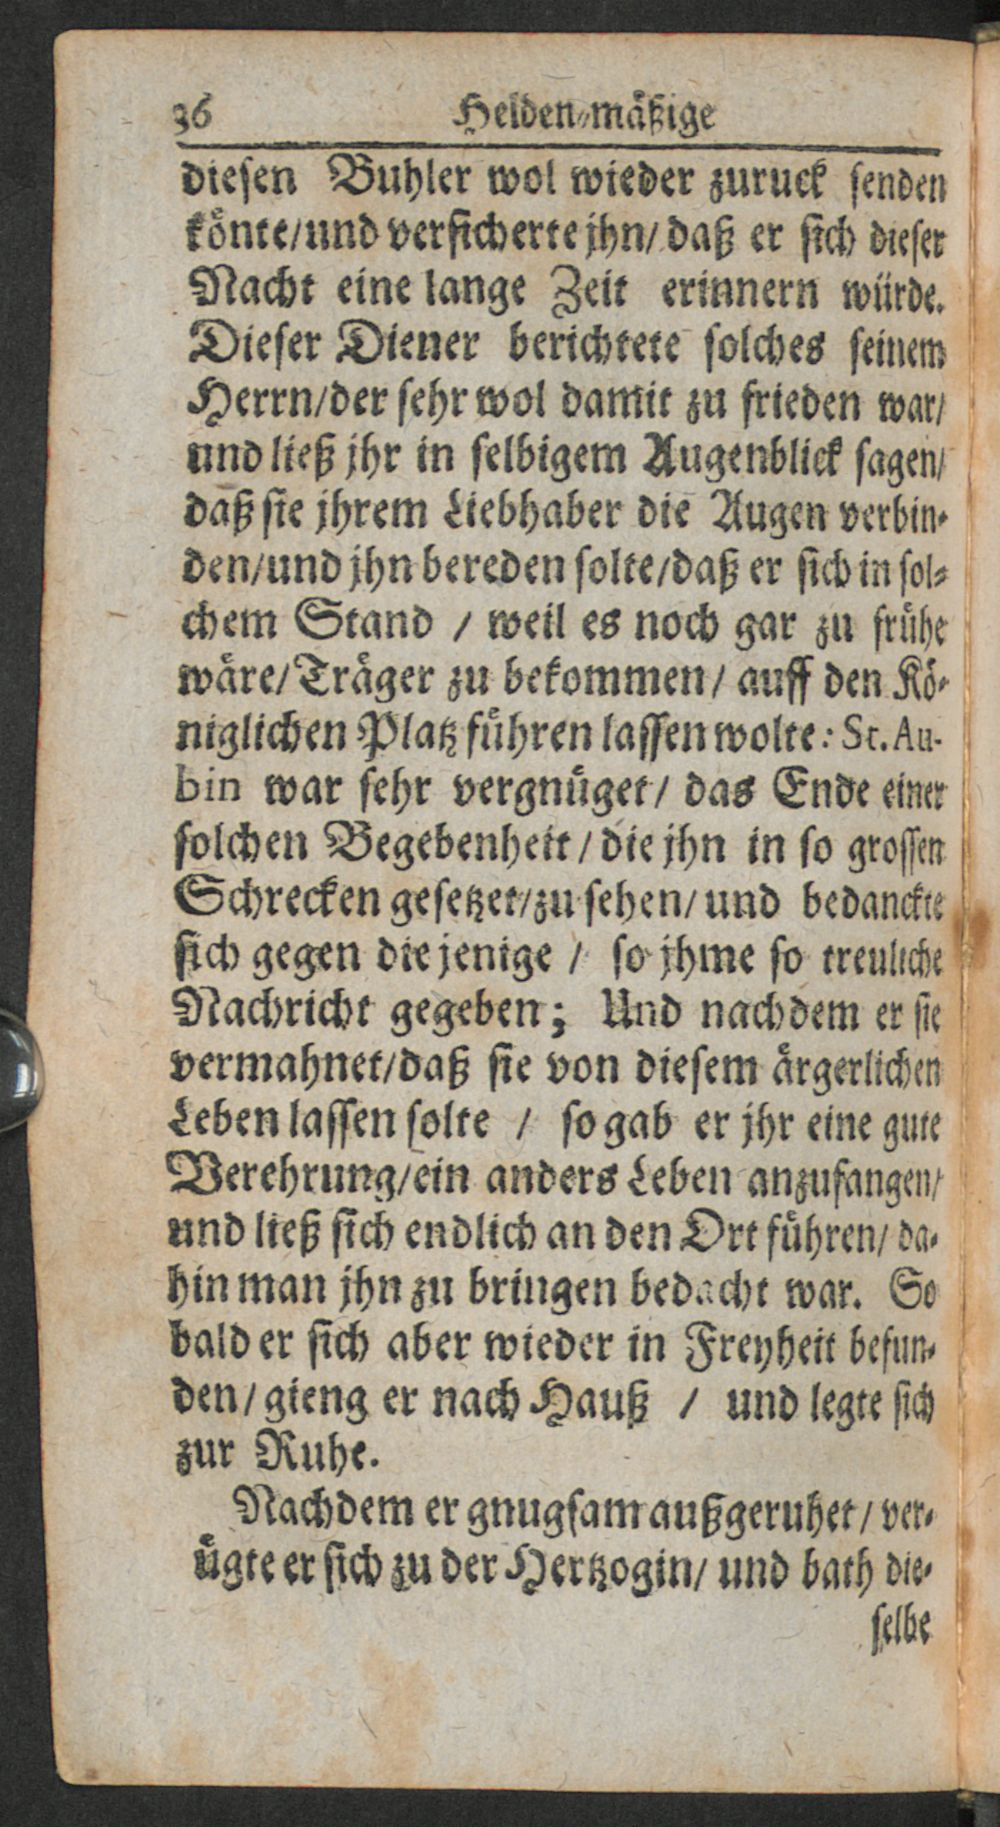 36 Helden-mäßige
diesen Buhler wol wieder zuruck senden
könte/und versicherte jhn/ daß er sich dieser
Nacht eine lange Zeit erinnern würde.
Dieser Diener berichtete solches seinem
Herrn/der sehr wol damit zu frieden war/
und ließ jhr in selbigem Augenblick sagen/
daß sie jhrem Liebhaber die Augen verbin-
den/und jhn bereden solte/daß er sich in sol-
chem Stand / weil es noch gar zu frühe
wäre/ Träger zu bekommen/ auff den Kö-
niglichen Platz führen lassen wolte: St. Au-
bin war sehr vergnüget/ das Ende einer
solchen Begebenheit / die jhn in so grossen
Schrecken gesetzet/zu sehen/ und bedanckte
sich gegen die jenige / so jhme so treuliche
Nachricht gegeben; Und nachdem er sie
vermahnet/daß sie von diesem ärgerlichen
Leben lassen solte / so gab er jhr eine gute
Verehrung/ein anders Leben anzufangen/
und ließ sich endlich an den Ort führen/ da-
hin man jhn zu bringen bedacht war. So
bald er sich aber wieder in Freyheit befun-
den/ gieng er nach Hauß / und legte sich
zur Ruhe.
Nachdem er gnugsam außgeruhet / ver-
ügte er sich zu der Hertzogin/ und bath die-
selbe